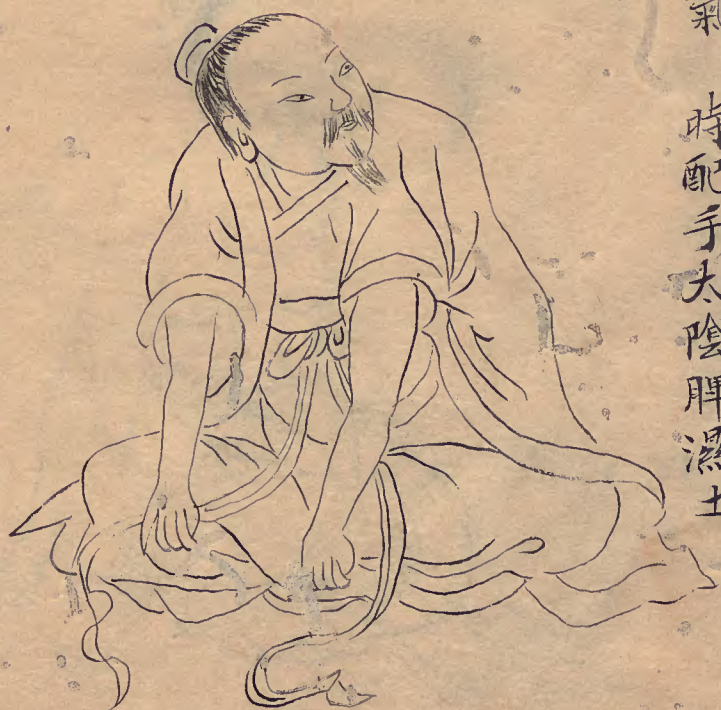 氣 時配手太陰脾濕土